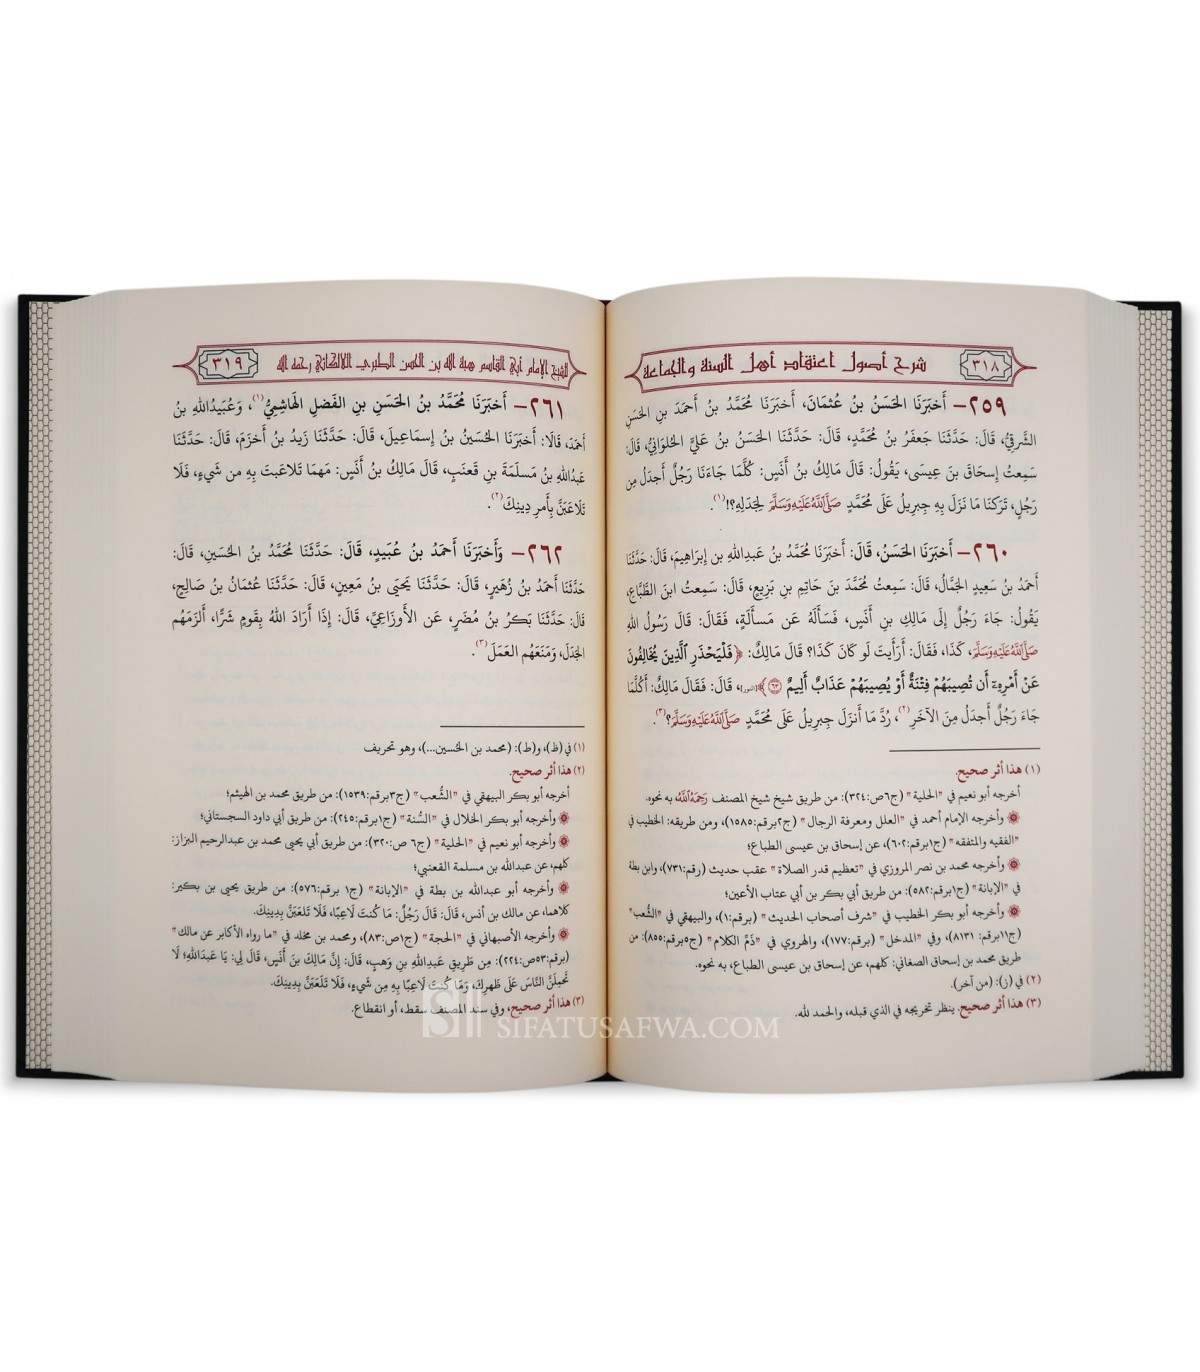 شرح أصول اعتقاد أهل السنة والجماعة
٣١٨
٢٥٩- أَخبَرَنَا الحَسَنُ بنُ عُثمَانَ، أَخبَرَنَا مُحَمَّدُ بنُ أَحمَدَ بنِ الحَسَنِ
الشَّرقِيُّ، قَالَ: حَدَّثَنَا جَعفَرُ بنُ مُحَمَّدٍ، قَالَ: حَدَّثَنَا الحَسَنُ بنُ عَلِيٍّ الحُلوَانِيُّ، قَالَ:
سَمِعتُ إِسحَاقَ بنَ عِيسَى، يَقُولُ: قَالَ مَالِكُ بنُ أَنَسٍ: كُلَّمَا جَاءَنَا رَجُلٌ أَجدَلُ مِن
رَجُلٍ، تَرَكنَا مَا نَزَلَ بِهِ جِبرِيلُ عَلَى مُحَمَّدٍ صَلَّى اللَّهُ عَلَيْهِ وَسَلَّمَ لِجَدَلِهِ؟!(١).
٢٦٠- أَخبَرَنَا الحَسَنُ، قَالَ: أَخبَرَنَا مُحَمَّدُ بنُ عَبدِاللهِ بنِ إِبرَاهِيمَ، قَالَ: حَدَّثَنَا
أَحمَدُ بنُ سَعِيدٍ الجَمَّالُ، قَالَ: سَمِعتُ مُحَمَّدَ بنَ حَاتِمِ بنِ بَزِيعٍ، قَالَ: سَمِعتُ ابنَ الطَّبَّاعِ،
يَقُولُ: جَاءَ رَجُلٌ إِلَى مَالِكِ بنِ أَنَسٍ، فَسَأَلَهُ عَن مَسأَلَةٍ، فَقَالَ: قَالَ رَسُولُ اللهِ
صَلَّى اللَّهُ عَلَيْهِ وَسَلَّمَ، كَذَا، فَقَالَ: أَرَأَيتَ لَو كَانَ كَذَا؟ قَالَ مَالِكٌ: ﴿فَلْيَحْذَرِ ٱلَّذِينَ يُخَالِفُونَ
عَنْ أَمْرِهِۦٓ أَن تُصِيبَهُمْ فِتْنَةٌ أَوْ يُصِيبَهُمْ عَذَابٌ أَلِيمٌ ٦٣﴾[النور]، قَالَ: فَقَالَ مَالِكٌ: أَكُلَّمَا
جَاءَ رَجُلٌ أَجدَلُ مِنَ الآخَرِ(٢)، رُدَّ مَا أَنزَلَ جِبرِيلُ عَلَى مُحَمَّدٍ صَلَّى اللَّهُ عَلَيْهِ وَسَلَّمَ؟(٣).
(١) هذا أثر صحيح.
أخرجه أبو نعيم في "الحلية" (ج٦ص:٣٢٤): من طريق شيخ شيخ المصنف رَحِمَهُ اللَّهُ به نحوه.
وأخرجه الإمام أحمد في "العلل ومعرفة الرجال" (ج٢برقم:١٥٨٥)، ومن طريقه: الخطيب في
"الفقيه والمتفقه" (ج١برقم:٦٠٢)، عن إسحاق بن عيسى الطباع؛
وأخرجه محمد بن نصر المروزي في "تعظيم قدر الصلاة" عقب حديث (رقم:٧٣١)، وابن بطة
في "الإبانة" (ج١برقم:٥٨٢): من طريق أبي بكر بن أبي عتاب الأعين؛
وأخرجه أبو بكر الخطيب في "شرف أصحاب الحديث" (برقم:١)، والبيهقي في "الشُّعب"
(ج١١برقم: ٨١٣١)، وفي "المدخل" (برقم:١٧٧)، والهروي في "ذَمِّ الكلام" (ج٥برقم:٨٥٥): من
طريق محمد بن إسحاق الصغاني: كلهم، عن إسحاق بن عيسى الطباع، به نحوه.
(٢) في (ز): (من آخر).
(٣) هذا أثر صحيح. ينظر تخريجه في الذي قبله، والحمد لله.
للشيخ الإمام أبي القاسم هبة الله بن الحسن الطبري اللالكائي رحمه الله
٣١٩
٢٦١- أَخبَرَنَا مُحَمَّدُ بنُ الحَسَنِ بنِ الفَضلِ الهَاشِمِيُّ(١)، وَعُبَيدُاللهِ بنُ
أَحمَدَ، قَالَا: أَخبَرَنَا الحُسَينُ بنُ إِسمَاعِيلَ، قَالَ: حَدَّثَنَا زَيدُ بنُ أَخزَمَ، قَالَ: حَدَّثَنَا
عَبدُاللهِ بنُ مَسلَمَةَ بنِ قَعنَبٍ، قَالَ مَالِكُ بنُ أَنَسٍ: مَهمَا تَلَاعَبتَ بِهِ مِن شَيءٍ، فَلَا
تَلَاعَبَنَّ بِأَمرِ دِينِكَ(٢).
٢٦٢- وَأَخبَرَنَا أَحمَدُ بنُ عُبَيدٍ، قَالَ: حَدَّثَنَا مُحَمَّدُ بنُ الحُسَينِ، قَالَ:
حَدَّثَنَا أَحمَدُ بنُ زُهَيرٍ، قَالَ: حَدَّثَنَا يَحيَى بنُ مَعِينٍ، قَالَ: حَدَّثَنَا عُثمَانُ بنُ صَالِحٍ،
قَالَ: حَدَّثَنَا بَكرُ بنُ مُضَرٍ، عَنِ الأَوزَاعِيِّ، قَالَ: إِذَا أَرَادَ اللهُ بِقَومٍ شَرًّا، أَلزَمَهُم
الجَدَلَ، وَمَنَعَهُم العَمَلَ(٣).
(١) في (ظ)، و(ط): (محمد بن الحسين...)، وهو تحريف
(٢) هذا أثر صحيح.
أخرجه أبو بكر البيهقي في "الشُّعب" (ج٣برقم:١٥٣٩): من طريق محمد بن الهيثم؛
وأخرجه أبو بكر الخلال في "السُّنة" (ج١برقم:٢٤٥): من طريق أبي داود السجستاني؛
وأخرجه أبو نعيم في "الحلية" (ج٦ ص:٣٢٠): من طريق أبي يحيى محمد بن عبدالرحيم البزاز:
كلهم، عن عبدالله بن مسلمة القعنبي؛
وأخرجه أبو عبدالله بن بطة في "الإبانة" (ج١ برقم:٥٧٦): من طريق يحيى بن بكير:
كلاهما، عن مالك بن أنس، قَالَ: قَالَ رَجُلٌ: مَا كُنتَ لَاعِبًا، فَلَا تَلعَبَنَّ بِدِينِكَ.
وأخرجه الأصبهاني في "الحجة" (ج١ص:٨٣)، ومحمد بن مخلد في "ما رواه الأكابر عن مالك"
(برقم:٥٣ص:٢٢٤): مِن طَرِيقِ عَبدِاللهِ بنِ وَهبٍ، قَالَ: إِنَّ مَالِكَ بنَ أَنَسٍ، قَالَ لِي: يَا عَبدَاللهِ؛ لَا
تَحمِلَنَّ النَّاسَ عَلَى ظَهرِكَ، وَمَا كُنتَ لَاعِبًا بِهِ مِن شَيءٍ، فَلَا تَلعَبَنَّ بِدِينِكَ.
(٣) هذا أثر صحيح، وفي سند المصنف سقط، أو انقطاع.
SIFATUSAFWA.COM